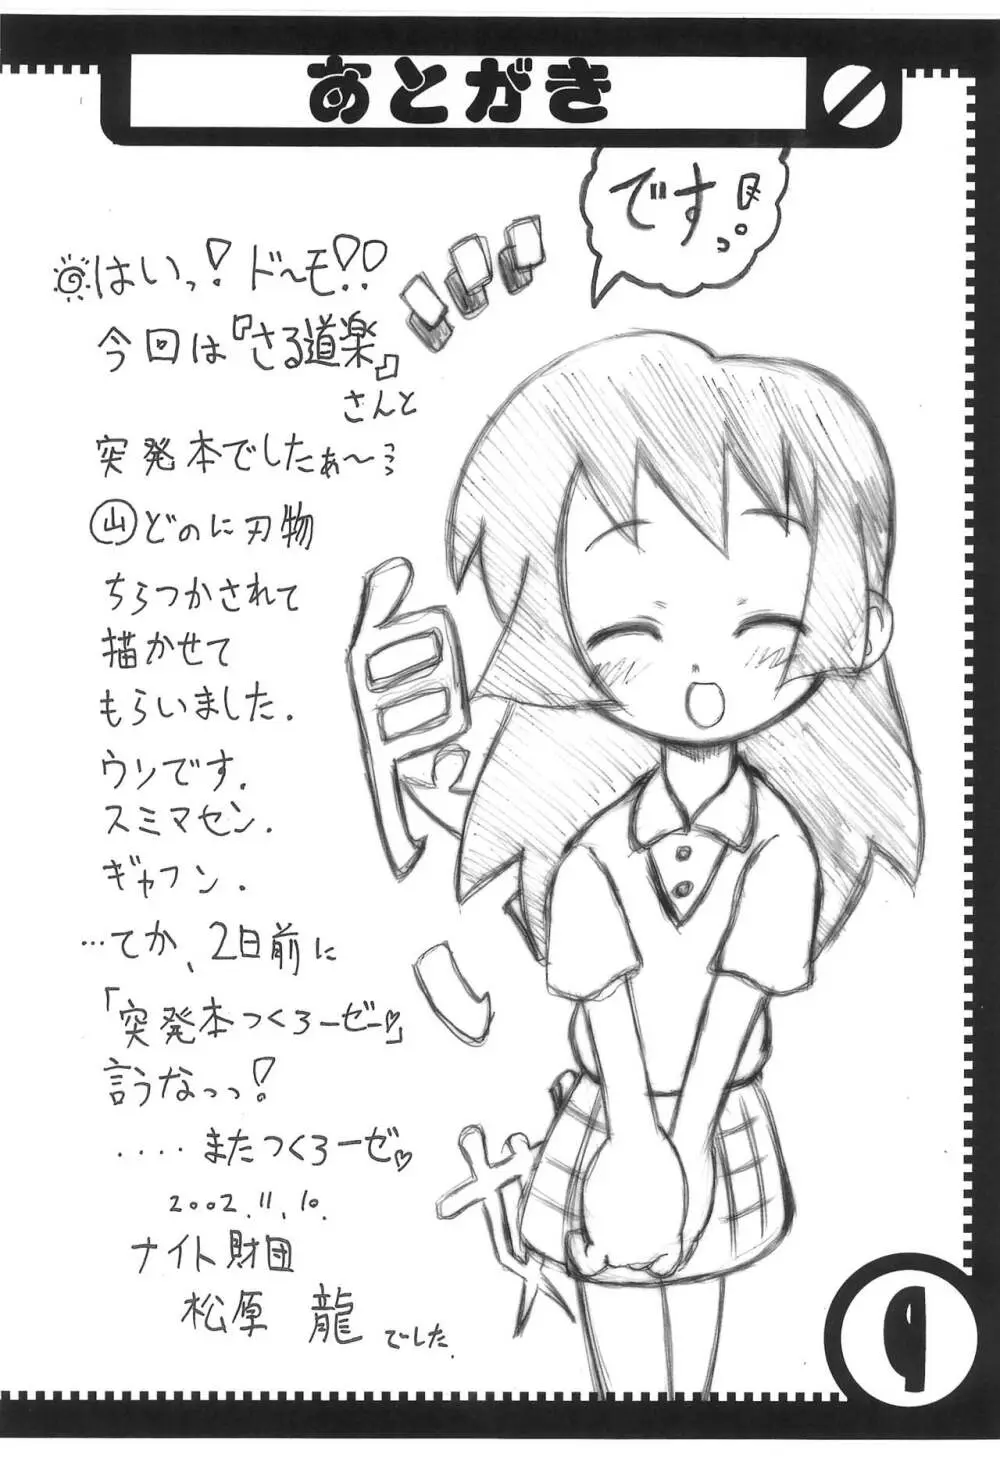 あとがき
です!っ。
はいっ!ド〜モ!!
今回は『さる道楽』
さんと
突発本でしたぁ〜
山どのに刃物
ちらつかされて
描かせて
もらいました.
ウソです.
スミマセン.
ギャフン.
…てか、2日前に
「突発本つくろーぜー♡」
言うなっっ!
‥‥またつくろーぜ♡
2002.11.10.
ナイト財団
松原 龍 でした.
9